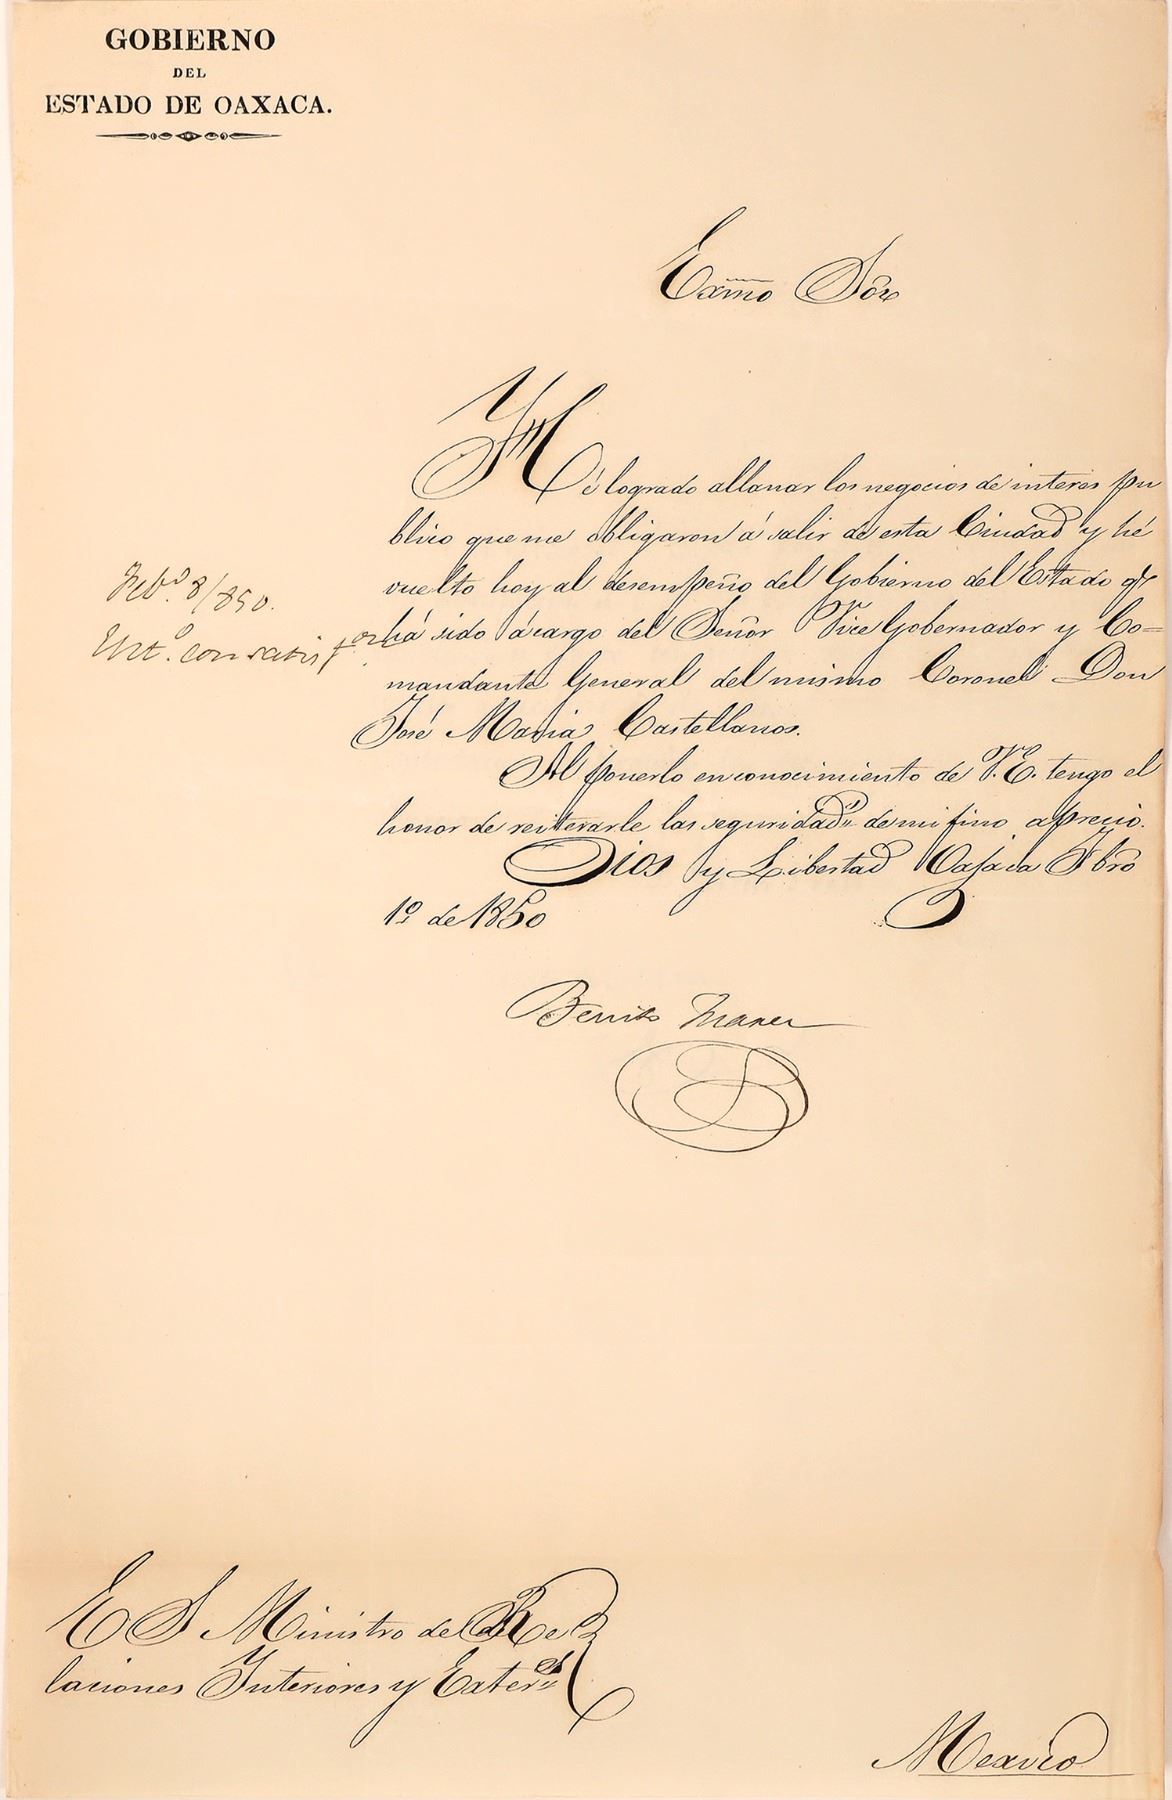 GOBIERNO
DEL
ESTADO DE OAXACA.
Exmo Sôr
Hé logrado allanar los negocios de interes pu
blico que me obligaron á salir de esta Ciudad y hé
vuelto hoy al desempeño del Gobierno del Estado qe
há sido á cargo del Señor Vice Gobernador y Co=
mandante General del mismo Coronel Don
José Maria Castellanos.
Al ponerlo en conocimiento de V.E. tengo el
honor de reiterarle las seguridads de mi fino aprecio.
Dios y Libertad Oajaca Fbro
1º de 1850
Febº 8/850.
Ent.º con satisfon
Benito Juarez
E S Ministro de Re
laciones Interiores y Exters
Mexico